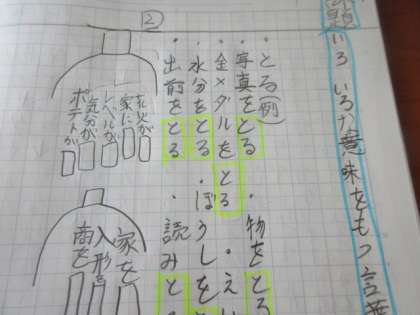 題
いろいろな意味をもつ言葉
・とる(例)
・写真をとる ・物をとる
・金メダルをとる ・えい
・水分をとる ・ぼうしをと
・出前をとる ・読みと
②
花火が
家に
レベルが
気分が
ポテトが
家を
人形を